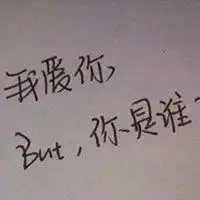 我爱你,
But, 你是谁